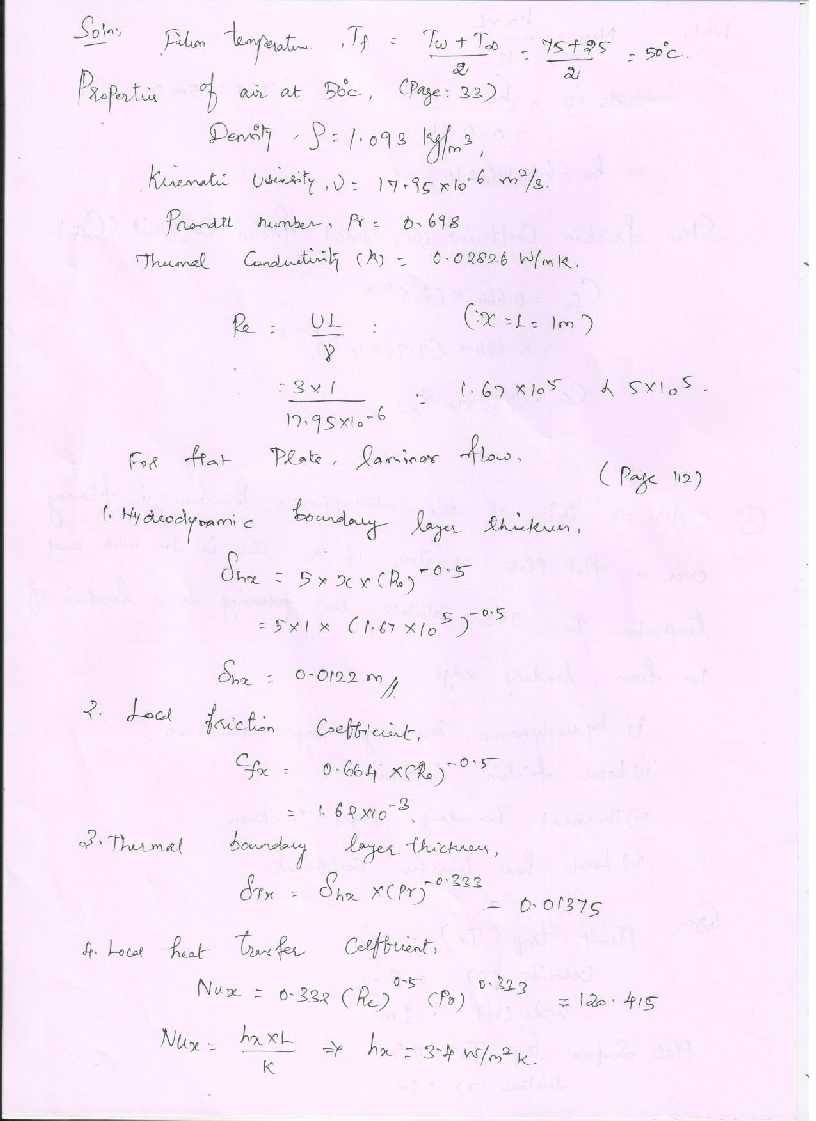 Soln:
Film temperature, Tf = (Tw + T∞)/2 = (75+25)/2 = 50°C.
Properties of air at 50°C, (Page: 33)
Density, ρ = 1.093 kg/m3,
Kinematic viscosity, ν = 17.95 x 10-6 m2/s.
Prandtl number, Pr = 0.698
Thermal Conductivity (k) = 0.02826 W/mk.
Re = UL/γ : (∵ x = L = 1m)
= 3x1 / 17.95x10-6 = 1.67 x 10^5 < 5x10^5.
For flat Plate, laminar flow.
(Page 112)
1. Hydrodynamic boundary layer thickness,
δhx = 5 x x x (Re)^-0.5
= 5x1x (1.67 x 10^5)^-0.5
δhx = 0.0122 m //
2. Local friction Coefficient,
Cfx = 0.664 x (Re)^-0.5
= 1.62x10^-3
3. Thermal boundary layer thickness,
δTx = δhx x (Pr)^-0.333 = 0.01375
4. Local heat transfer Coefficient,
Nux = 0.332 (Re)^0.5 (Pr)^0.333 = 120.415
Nux = hx x L / K ⇒ hx = 3.4 W/m2k.